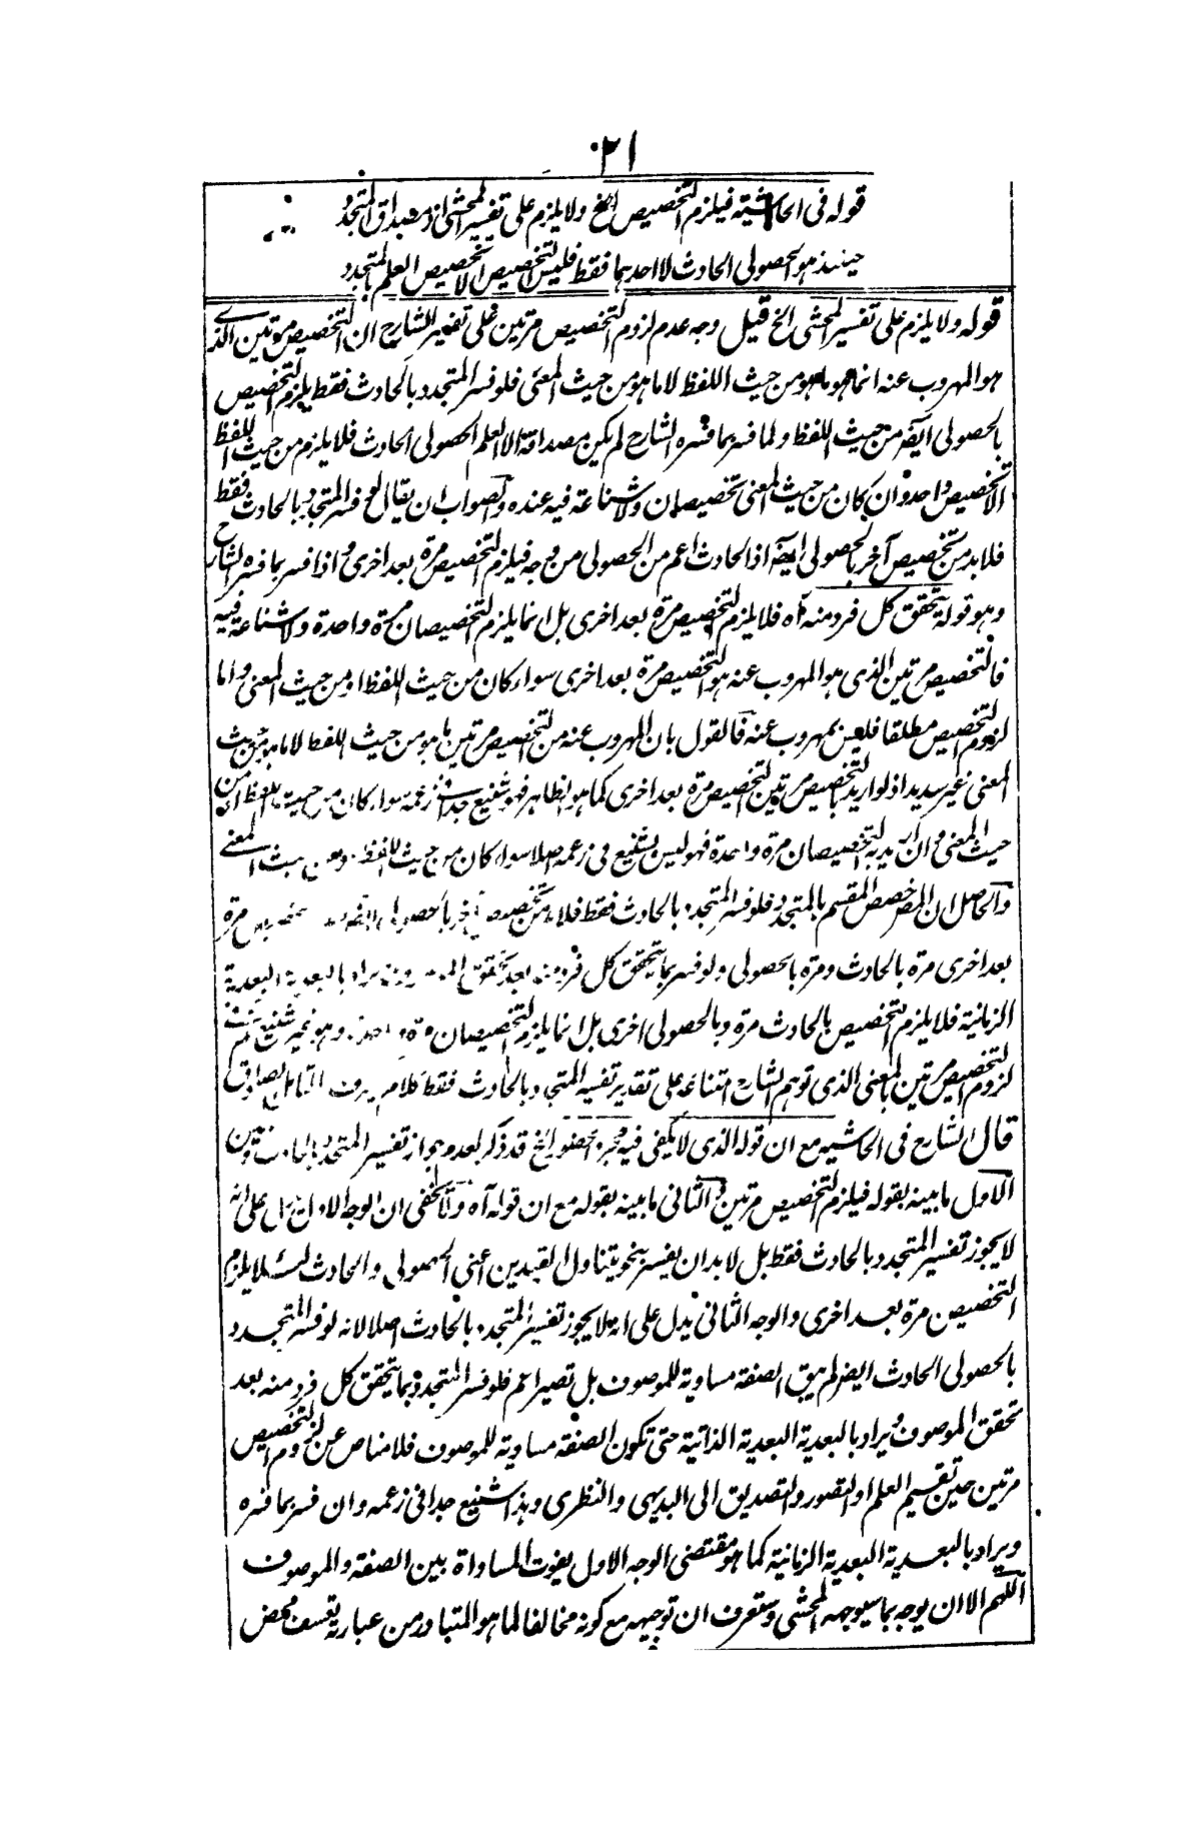 ٢١
قوله فى الحاشية فيلزم التخصيص الخ ولا يلزم على تفسير المحشى اذ مصداق المتجدد
حينئذ هو الحصولى الحادث لا احدهما فقط فليس التخصيص الا تخصيص العلم بالمتجدد
قوله ولا يلزم على تفسير المحشى الخ قيل وجه عدم لزوم التخصيص مرتين على تفسير الشارح ان التخصيص مرتين الذى
هو المهروب عنه انما هو ما هو من حيث اللفظ لا ما هو من حيث المعنى فلو فسر المتجدد بالحادث فقط يلزم التخصيص
بالحصولى ايضا من حيث اللفظ ولما فسر بما فسره الشارح لم يكن مصداقه الا العلم الحصولى الحادث فلا يلزم من حيث اللفظ
الا تخصيص واحد وان كان من حيث المعنى تخصيصان ولا شناعة فيه عنده والصواب ان يقال لو فسر المتجدد بالحادث فقط
فلا بد من تخصيص آخر بالحصولى ايضا اذ الحادث اعم من الحصولى من وجه فيلزم التخصيص مرة بعد اخرى واذا فسر بما فسره الشارح
وهو قوله يتحقق كل فرد منه آه فلا يلزم التخصيص مرة بعد اخرى بل انما يلزم التخصيصان مرة واحدة ولا شناعة فيه
فالتخصيص مرتين الذى هو المهروب عنه هو التخصيص مرة بعد اخرى سواء كان من حيث اللفظ او من حيث المعنى واما
لزوم التخصيص مطلقا فليس بمهروب عنه فالقول بان المهروب عنه من التخصيص مرتين ما هو من حيث اللفظ لا ما هو من حيث
المعنى غير سديد اذ لو اريد بالتخصيص مرتين التخصيص مرة بعد اخرى كما هو الظاهر فهو شنيع جدا فى زعمه سواء كان من حيث اللفظ او من
حيث المعنى وان اريد به التخصيصان مرة واحدة فهو ليس بشنيع فى زعمه اصلا سواء كان من حيث اللفظ او من حيث المعنى
والحاصل ان المصر خصص المقسم بالمتجدد فلو فسر المتجدد بالحادث فقط فلا بد من تخصيص آخر بالحصولى مرة
بعد اخرى مرة بالحادث ومرة بالحصولى ولو فسر بما يتحقق كل فرد منه بعد تحقق يراد بالبعدية البعدية
الزمانية فلا يلزم التخصيص بالحادث مرة وبالحصولى اخرى بل انما يلزم التخصيصان مرة واحدة وهو غير شنيع
لزوم التخصيص مرتين بالمعنى الذى توهم الشارح امتناعه على تقدير تفسير المتجدد بالحادث فقط كلام يعرف التامل الصادق
قال الشارح فى الحاشيه مع ان قوله الذى لا يكفى فيه مجرد الحضور الخ قد ذكر لعدم جواز تفسير المتجدد بالحادث وجهين
الاول ما بينه بقوله فيلزم التخصيص مرتين والثانى ما بينه بقوله مع ان قوله آه ولا يخفى ان الوجه الاول يدل على انه
لا يجوز تفسير المتجدد بالحادث فقط بل لا بد ان يفسر بنحو يتناول القيدين اعنى الحصولى والحادث لئلا يلزم
التخصيص مرة بعد اخرى والوجه الثانى يدل على انه لا يجوز تفسير المتجدد بالحادث اصلا لانه لو فسر المتجدد
بالحصولى الحادث ايضا لم يبق الصفة مساوية للموصوف بل تصير اعم فلو فسر المتجدد بما يتحقق كل فرد منه بعد
تحقق الموصوف ويراد بالبعدية البعدية الذاتية حتى تكون الصفة مساوية للموصوف فلا مناص عن لزوم التخصيص
مرتين حين تقسيم العلم او التصور والتصديق الى البديهى والنظرى وهذا شنيع جدا فى زعمه وان فسر بما فسره
ويراد بالبعدية البعدية الزمانية كما هو مقتضى الوجه الاول يفوت المساواة بين الصفة والموصوف
اللهم الا ان يوجه بما سيوجهه المحشى وستعرف ان توجيهه مع كونه مخالفا لما هو المتبادر من عبارته تعسف محض